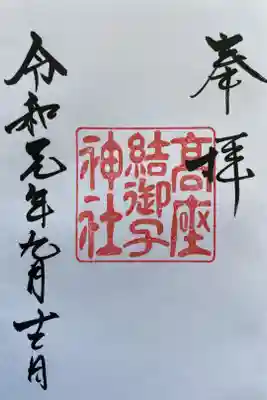 奉拝
高座
結御子
神社
令和元年九月十一日